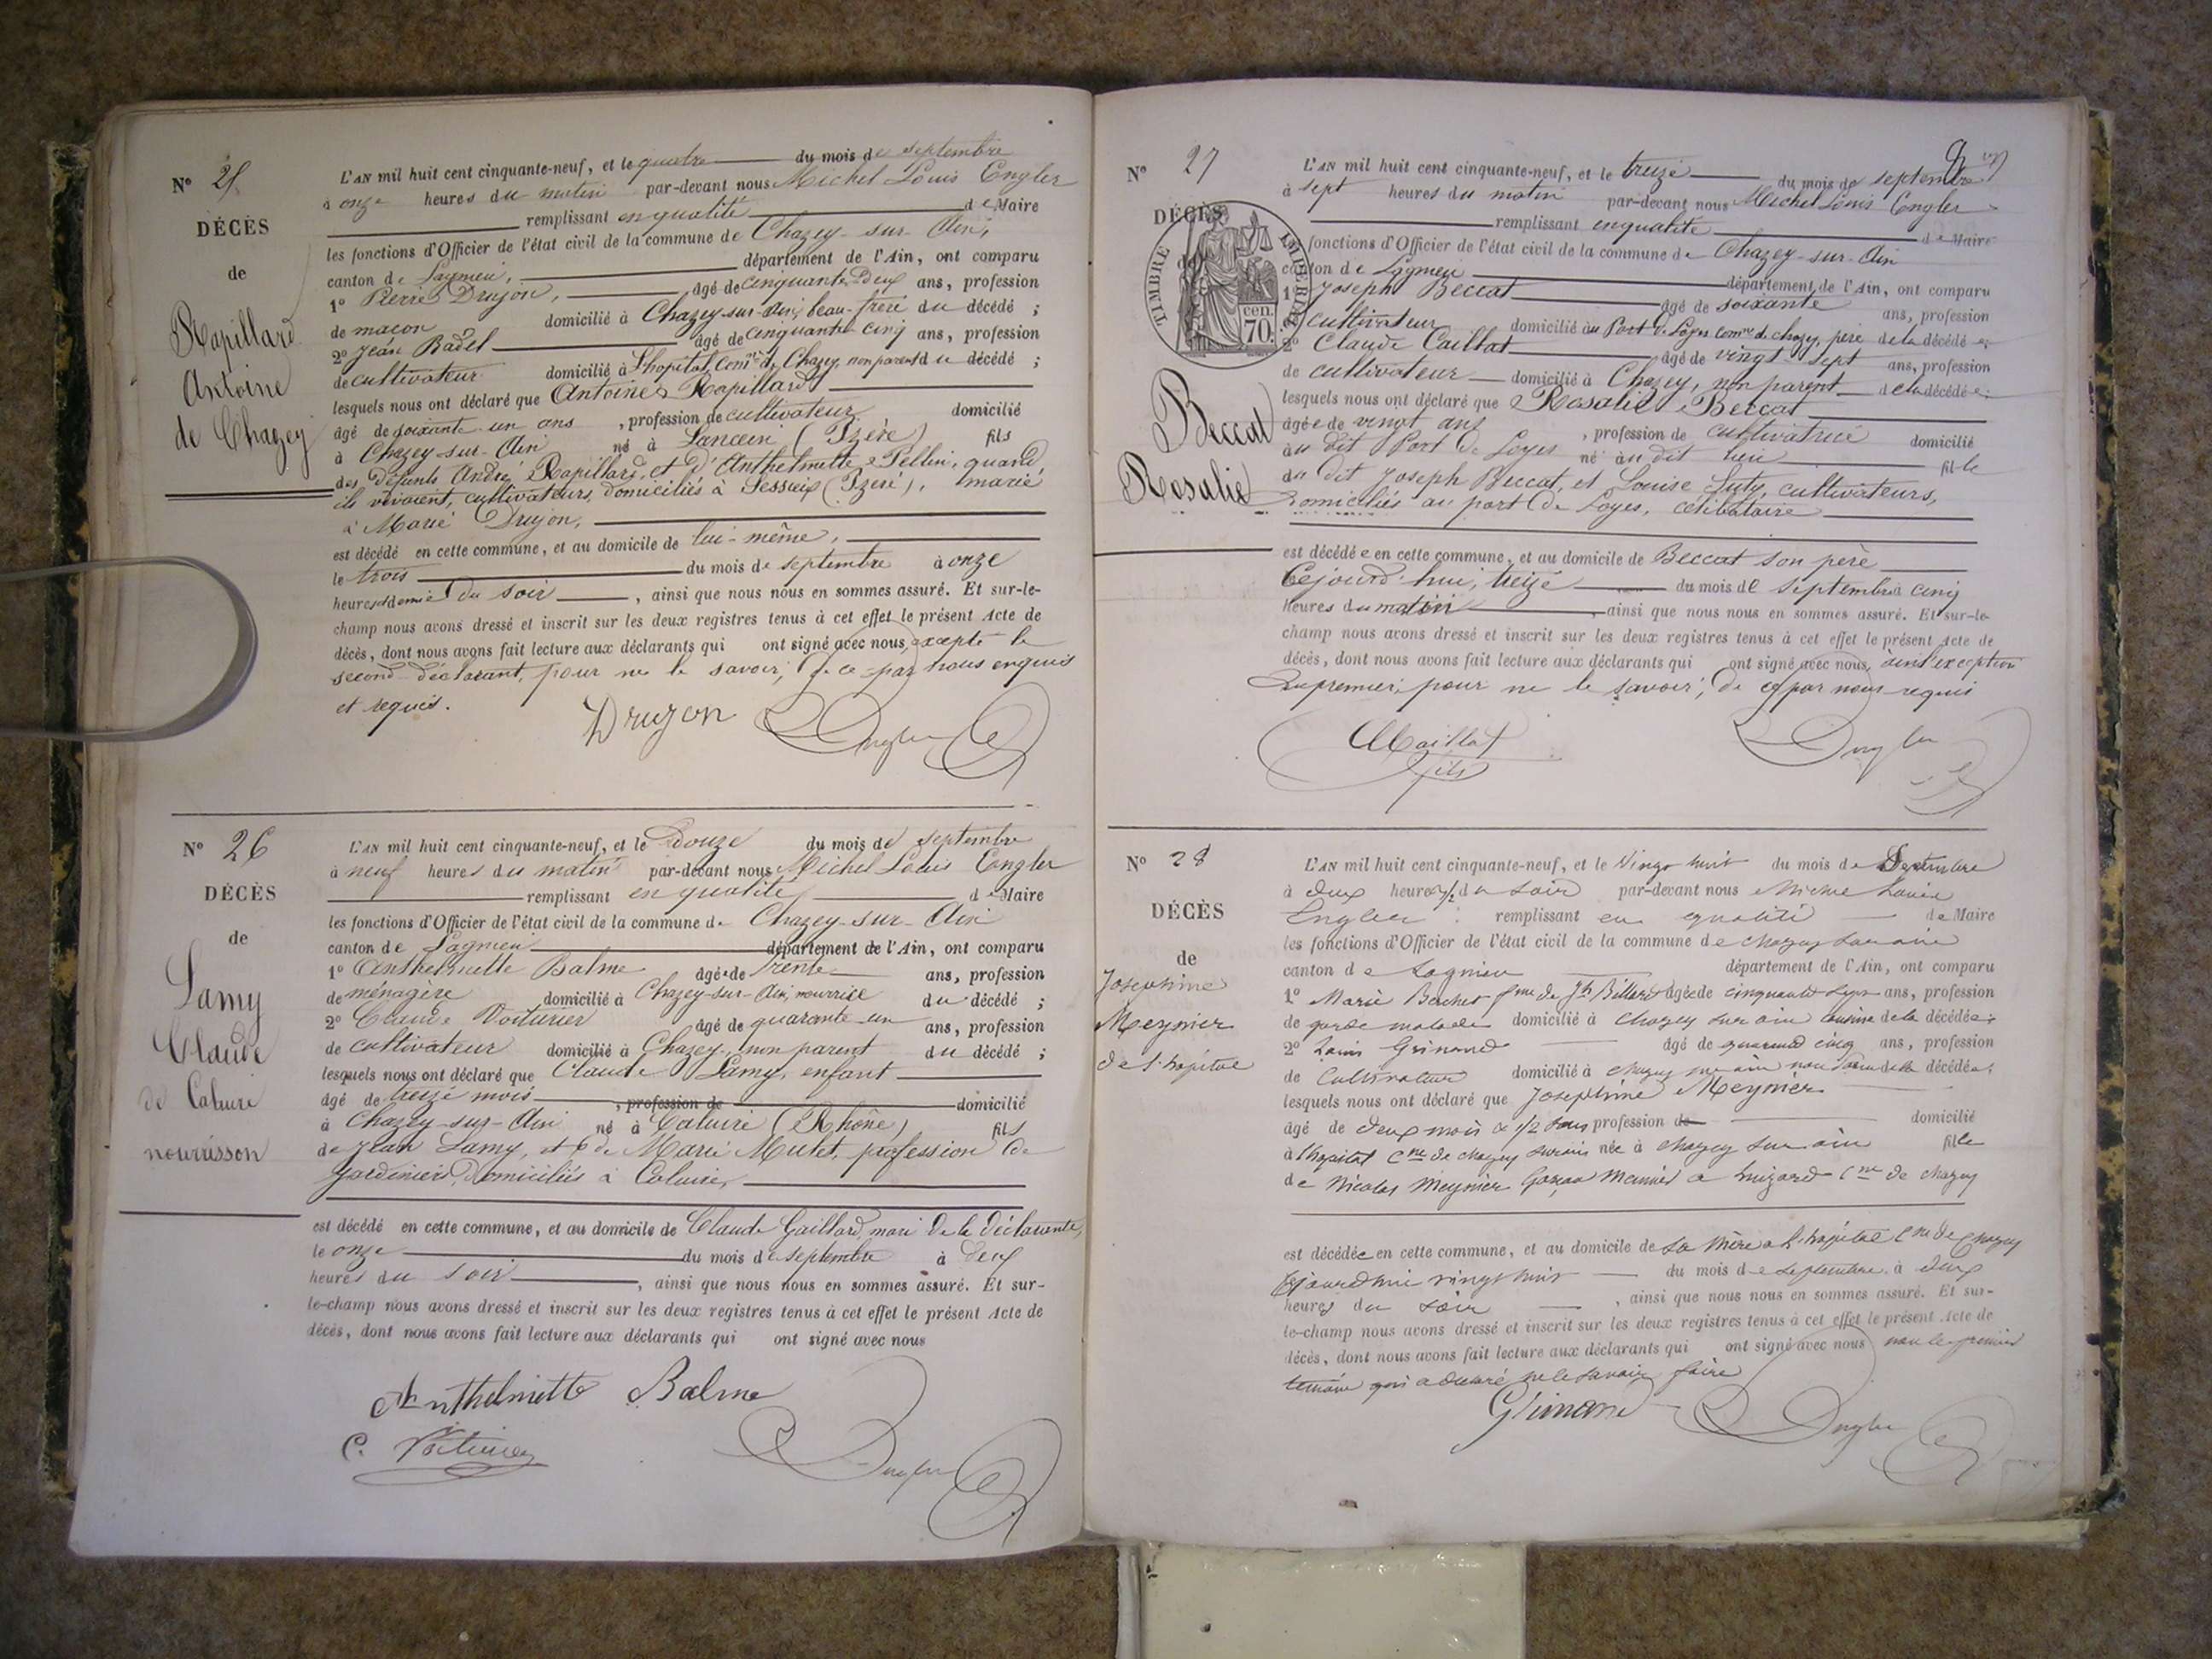 Nº 25
DÉCÈS
de
Rapillard
Antoine
de Chazey
L'AN mil huit cent cinquante-neuf, et le quatre du mois de septembre
à onze heures du matin par-devant nous Michel Louis Engler
remplissant en qualité de Maire
les fonctions d'Officier de l'état civil de la commune de Chazey-sur-Ain,
canton de Lagnieu, département de l'Ain, ont comparu
1º Pierre Drujon, âgé de cinquante deux ans, profession
de maçon domicilié à Chazey-sur-Ain, beau-frère du décédé ;
2º Jean Badel âgé de cinquante cinq ans, profession
de cultivateur domicilié à l'hopital, comne de Chazey, non parent du décédé ;
lesquels nous ont déclaré que Antoine Rapillard
âgé de soixante un ans, profession de cultivateur domicilié
à Chazey-sur-Ain né à (Izère) fils
des défunts André Rapillard, et d'Anthelmette Pellin, quand,
ils vivaient, cultivateurs, domiciliés à (Izère), marié
à Marie Drujon,
est décédé en cette commune, et au domicile de lui-même,
le trois du mois de septembre à onze
heures et demie du soir, ainsi que nous nous en sommes assuré. Et sur-le-
champ nous avons dressé et inscrit sur les deux registres tenus à cet effet le présent Acte de
décès, dont nous avons fait lecture aux déclarants qui ont signé avec nous, excepté le
second déclarant, pour ne le savoir, de ce par nous enquis
et requis.
Drujon Engler
Nº 26
DÉCÈS
de
Lamy
Claude
de Caluire
nourrisson
L'AN mil huit cent cinquante-neuf, et le Douze du mois de septembre
à neuf heures du matin par-devant nous Michel Louis Engler
remplissant en qualité de Maire
les fonctions d'Officier de l'état civil de la commune de Chazey-sur-Ain
canton de Lagnieu département de l'Ain, ont comparu
1º Anthelmette Balme âgée de trente ans, profession
de ménagère domicilié à Chazey-sur-Ain, nourrice du décédé ;
2º Claude Voiturier âgé de quarante-un ans, profession
de cultivateur domicilié à Chazey, non parent du décédé ;
lesquels nous ont déclaré que Claude Lamy, enfant
âgé de treize mois, profession de domicilié
à Chazey-sur-Ain né à Caluire (Rhône) fils
de Jean Lamy, et de Marie Mulet, profession de
Jardiniers, domiciliés à Caluire,
est décédé en cette commune, et au domicile de Claude Gaillard, mari de la déclarante,
le onze du mois de septembre à deux
heures du soir, ainsi que nous nous en sommes assuré. Et sur-
le-champ nous avons dressé et inscrit sur les deux registres tenus à cet effet le présent Acte de
décès, dont nous avons fait lecture aux déclarants qui ont signé avec nous
Anthelmette Balme
C. Voiturier Engler
Nº 27
DÉCÈS
TIMBRE IMPÉRIAL
70 cen.
Beccat
Rosalie
L'AN mil huit cent cinquante-neuf, et le treize du mois de septembre
à sept heures du matin par-devant nous Michel Louis Engler
remplissant en qualité de Maire
fonctions d'Officier de l'état civil de la commune de Chazey-sur-Ain
canton de Lagnieu département de l'Ain, ont comparu
1º Joseph Beccat âgé de soixante ans, profession
cultivateur domicilié au Port de Loyes comne de Chazey, père de la décédée ;
2º Claude Caillat âgé de vingt sept ans, profession
de cultivateur domicilié à Chazey, non parent de la décédée ;
lesquels nous ont déclaré que Rosalie Beccat
âgée de vingt ans, profession de cultivatrice domicilié
au dit Port de Loyes né au dit lieu fille
du dit Joseph Beccat, et Louise Juty, cultivateurs,
domiciliés au port de Loyes, célibataire
est décédée en cette commune, et au domicile de Beccat son père
Cejourd'hui, treize du mois de septembre à cinq
heures du matin, ainsi que nous nous en sommes assuré. Et sur-le-
champ nous avons dressé et inscrit sur les deux registres tenus à cet effet le présent Acte de
décès, dont nous avons fait lecture aux déclarants qui ont signé avec nous, à l'exception
du premier, pour ne le savoir, de ce par nous requis
Caillat fils Engler
Nº 28
DÉCÈS
de
Josephine
Meynier
de l'hopital
L'AN mil huit cent cinquante-neuf, et le Vingt huit du mois de Septembre
à deux heures 1/2 du soir par-devant nous Michel Louis
Engler remplissant en qualité de Maire
les fonctions d'Officier de l'état civil de la commune de chazey sur ain
canton de Lagnieu département de l'Ain, ont comparu
1º Marie Berchet fme de Jh Billard âgée de cinquante sept ans, profession
de garde malade domicilié à Chazey sur ain cousine de la décédée ;
2º Louis Grinand âgé de quarante cinq ans, profession
de Cultivateur domicilié à chazey sur ain non parent de la décédée ;
lesquels nous ont déclaré que Josephine Meynier
âgé de deux mois & 1/2 profession de domicilié
à l'hopital Cne de chazey sur ain née à chazey sur ain fille
de Nicolas Meynier Garçon Meunier a Luizard Cne de chazey
est décédée en cette commune, et au domicile de sa mère a l'hopital Cne de Chazey
cejourdhui vingt huit du mois de septembre à deux
heures du soir, ainsi que nous nous en sommes assuré. Et sur-
le-champ nous avons dressé et inscrit sur les deux registres tenus à cet effet le présent Acte de
décès, dont nous avons fait lecture aux déclarants qui ont signé avec nous non le premier
témoin qui a déclaré ne le savoir faire
Grinand Engler